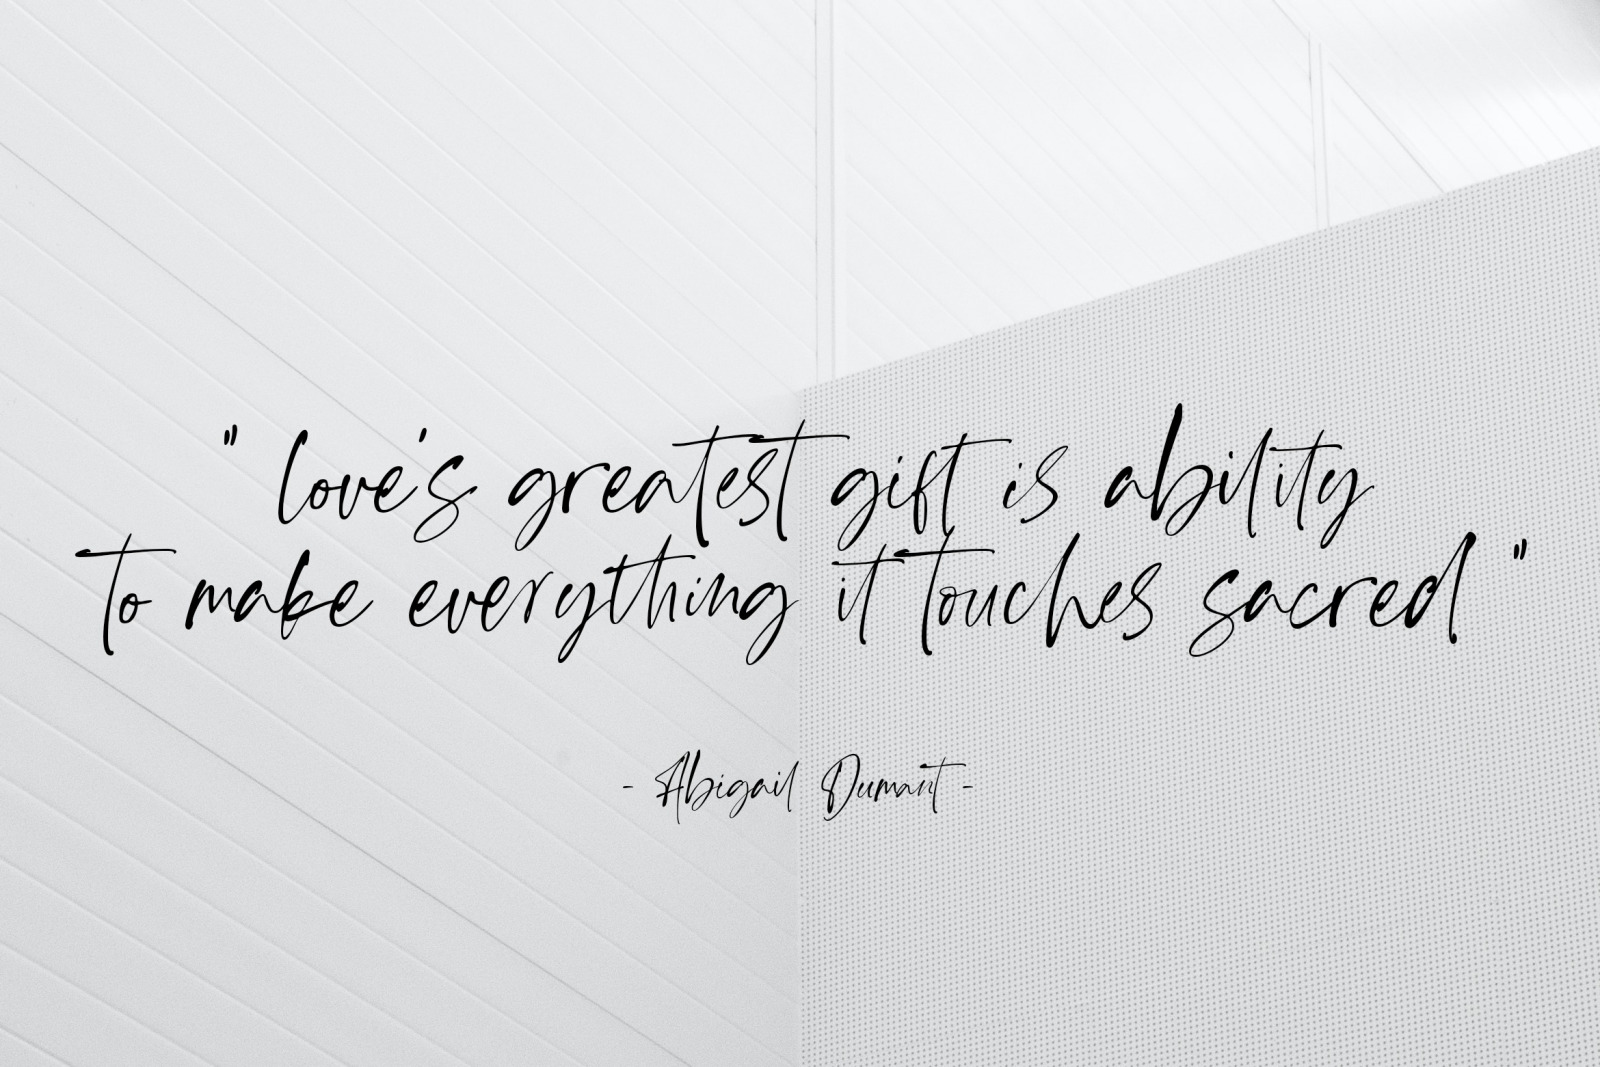 " love's greatest gift is ability
to make everything it touches sacred "
- Abigail Dumant -